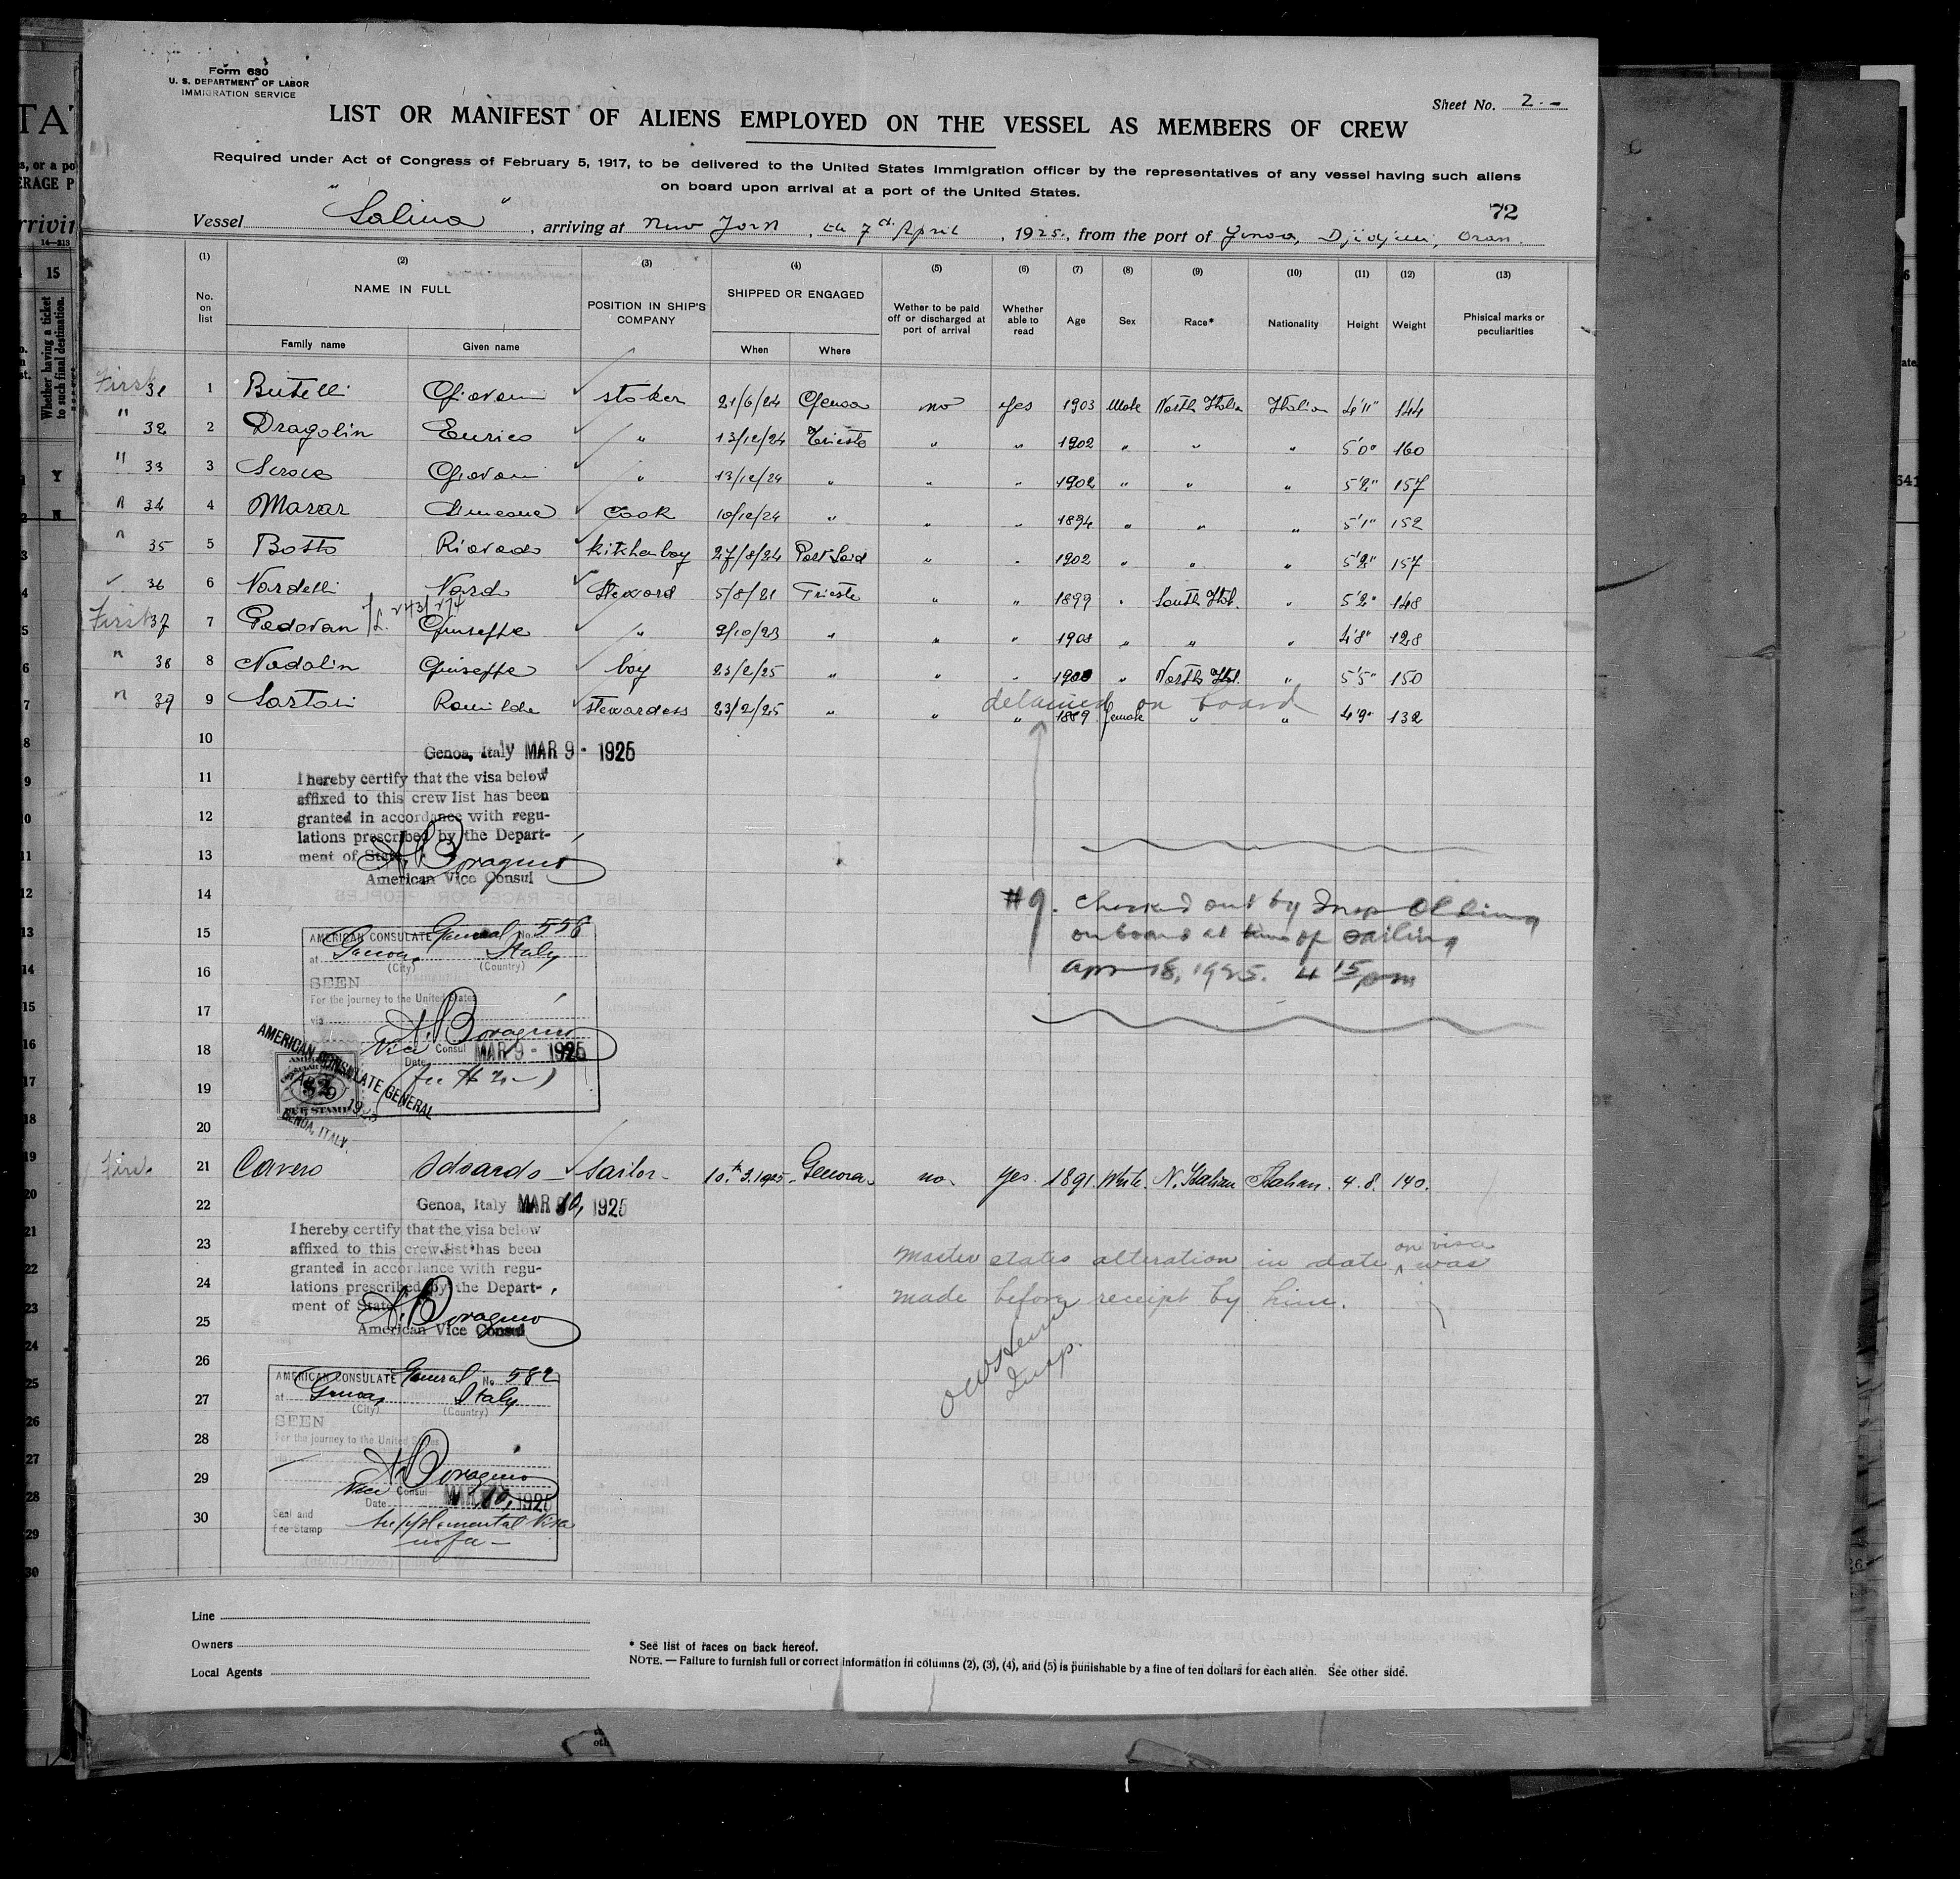 Form 630
U. S. DEPARTMENT OF LABOR
IMMIGRATION SERVICE
Sheet No. 2.-
LIST OR MANIFEST OF ALIENS EMPLOYED ON THE VESSEL AS MEMBERS OF CREW
Required under Act of Congress of February 5, 1917, to be delivered to the United States Immigration officer by the representatives of any vessel having such aliens
on board upon arrival at a port of the United States.
72
Vessel "Salina", arriving at New York, 7 April, 1925, from the port of Genoa, Djidjelli, Oran.
(1) (2) (3) (4) (5) (6) (7) (8) (9) (10) (11) (12) (13)
No. on list NAME IN FULL Family name Given name POSITION IN SHIP'S COMPANY SHIPPED OR ENGAGED When Where Wether to be paid off or discharged at port of arrival Whether able to read Age Sex Race* Nationality Height Weight Phisical marks or peculiarities
First 31 1 Butelli Giovanni stoker 21/6/24 Genoa no yes 1903 Male North Italia Italian 4'11" 144
" 32 2 Dragolin Enrico " 13/12/24 Trieste " " 1902 " " " 5'0" 160
" 33 3 Giovani " 13/12/24 " " " 1902 " " " 5'2" 157
" 34 4 Marar Simeone cook 10/12/24 " " " 1894 " " " 5'1" 152
" 35 5 Botto kitchenboy 27/8/24 Port Said " " 1902 " " " 5'2" 157
36 6 Nardelli Nardo Steward 5/8/21 Trieste " " 1899 " South Ital. " 5'2" 148
First 37 7 Pedovan Giuseppe " 9/10/23 " " " 1908 " " " 4'8" 128
" 38 8 Nadalin Giuseppe boy 23/2/25 " " " " North Ital. " 5'5" 150
detained on board
" 39 9 Sartori Romilda stewardess 23/2/25 " " " 1889 female " " 4'9" 132
10
Genoa, Italy MAR 9 - 1925
11 I hereby certify that the visa below
affixed to this crew list has been
12 granted in accordance with regu-
lations prescribed by the Depart-
13 ment of State.
A. Boragino
American Vice Consul
14
#9. Checked out by Insp
on board at time of sailing
Apr 18, 1925. 4 15 pm
15 AMERICAN CONSULATE General No. 556
at Genoa, Italy
16 (City) (Country)
SEEN
For the journey to the United States
17 via
A. Boragino
18 Vice Consul
Date MAR 9 - 1925
(fee $ 2.-)
19 AMERICAN CONSULATE GENERAL
GENOA, ITALY
$2
FEE STAMP
20
First 21 Cavero Edoardo - sailor - 10th 3.1925. Genova. no. yes. 1891. White. N. Italian Italian. 4.8. 140.
22 Genoa, Italy MAR 10, 1925
I hereby certify that the visa below
23 affixed to this crew list has been
granted in accordance with regu-
24 lations prescribed by the Depart-
ment of State.
A. Boragino
25 American Vice Consul
Master states alteration in date on visa was
made before receipt by him.
Insp.
26 AMERICAN CONSULATE General No. 582
27 at Genoa, Italy
(City) (Country)
28 SEEN
For the journey to the United States
via
29 A. Boragino
Vice Consul
Date MAR 10, 1925
30 Seal and
Fee Stamp
Supplemental Visa
no fee -
Line
Owners
Local Agents
* See list of races on back hereof.
NOTE. — Failure to furnish full or correct information in columns (2), (3), (4), and (5) is punishable by a fine of ten dollars for each alien. See other side.